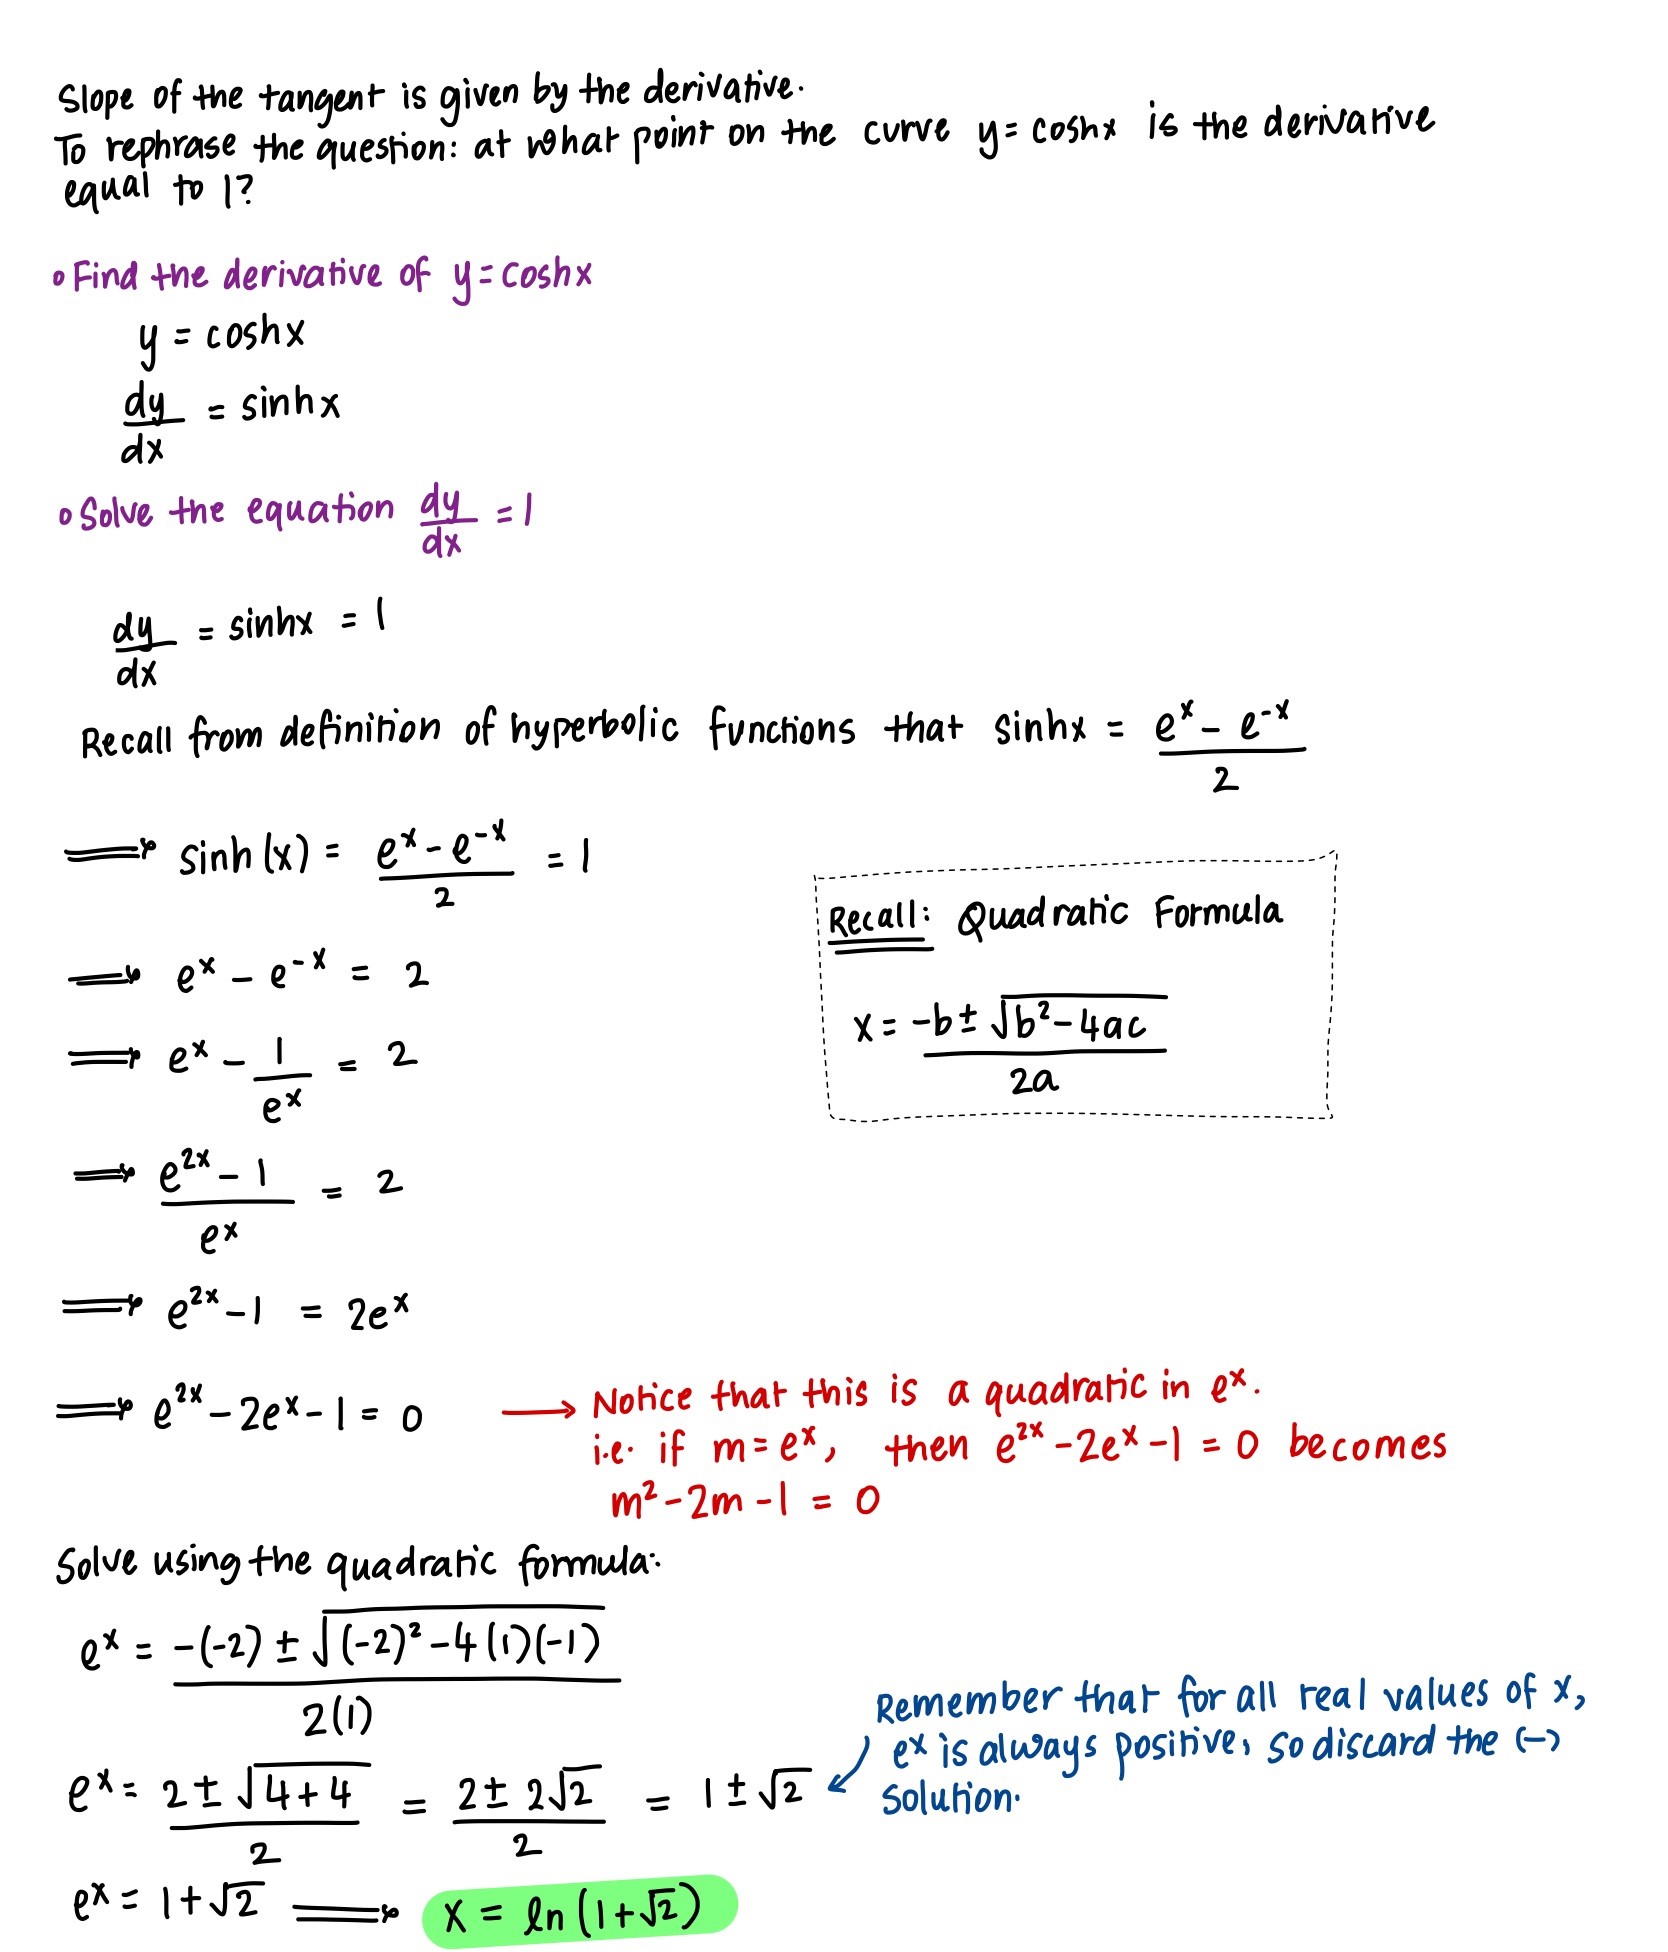 Slope of the tangent is given by the derivative.
To rephrase the question: at what point on the curve y = coshx is the derivative
equal to 1?
• Find the derivative of y = coshx
y = coshx
dy/dx = sinhx
• Solve the equation dy/dx = 1
dy/dx = sinhx = 1
Recall from definition of hyperbolic functions that sinhx = (e^x - e^-x)/2
⟹ sinh(x) = (e^x - e^-x)/2 = 1
⟹ e^x - e^-x = 2
⟹ e^x - 1/e^x = 2
⟹ (e^2x - 1)/e^x = 2
⟹ e^2x - 1 = 2e^x
⟹ e^2x - 2e^x - 1 = 0
Recall: Quadratic Formula
x = (-b ± √(b² - 4ac))/2a
→ Notice that this is a quadratic in e^x.
i.e. if m = e^x, then e^2x - 2e^x - 1 = 0 becomes
m² - 2m - 1 = 0
Solve using the quadratic formula:
e^x = (-(-2) ± √((-2)² - 4(1)(-1)))/2(1)
e^x = (2 ± √(4+4))/2 = (2 ± 2√2)/2 = 1 ± √2
Remember that for all real values of x,
e^x is always positive, so discard the (-)
solution.
e^x = 1 + √2 ⟹ x = ln(1+√2)